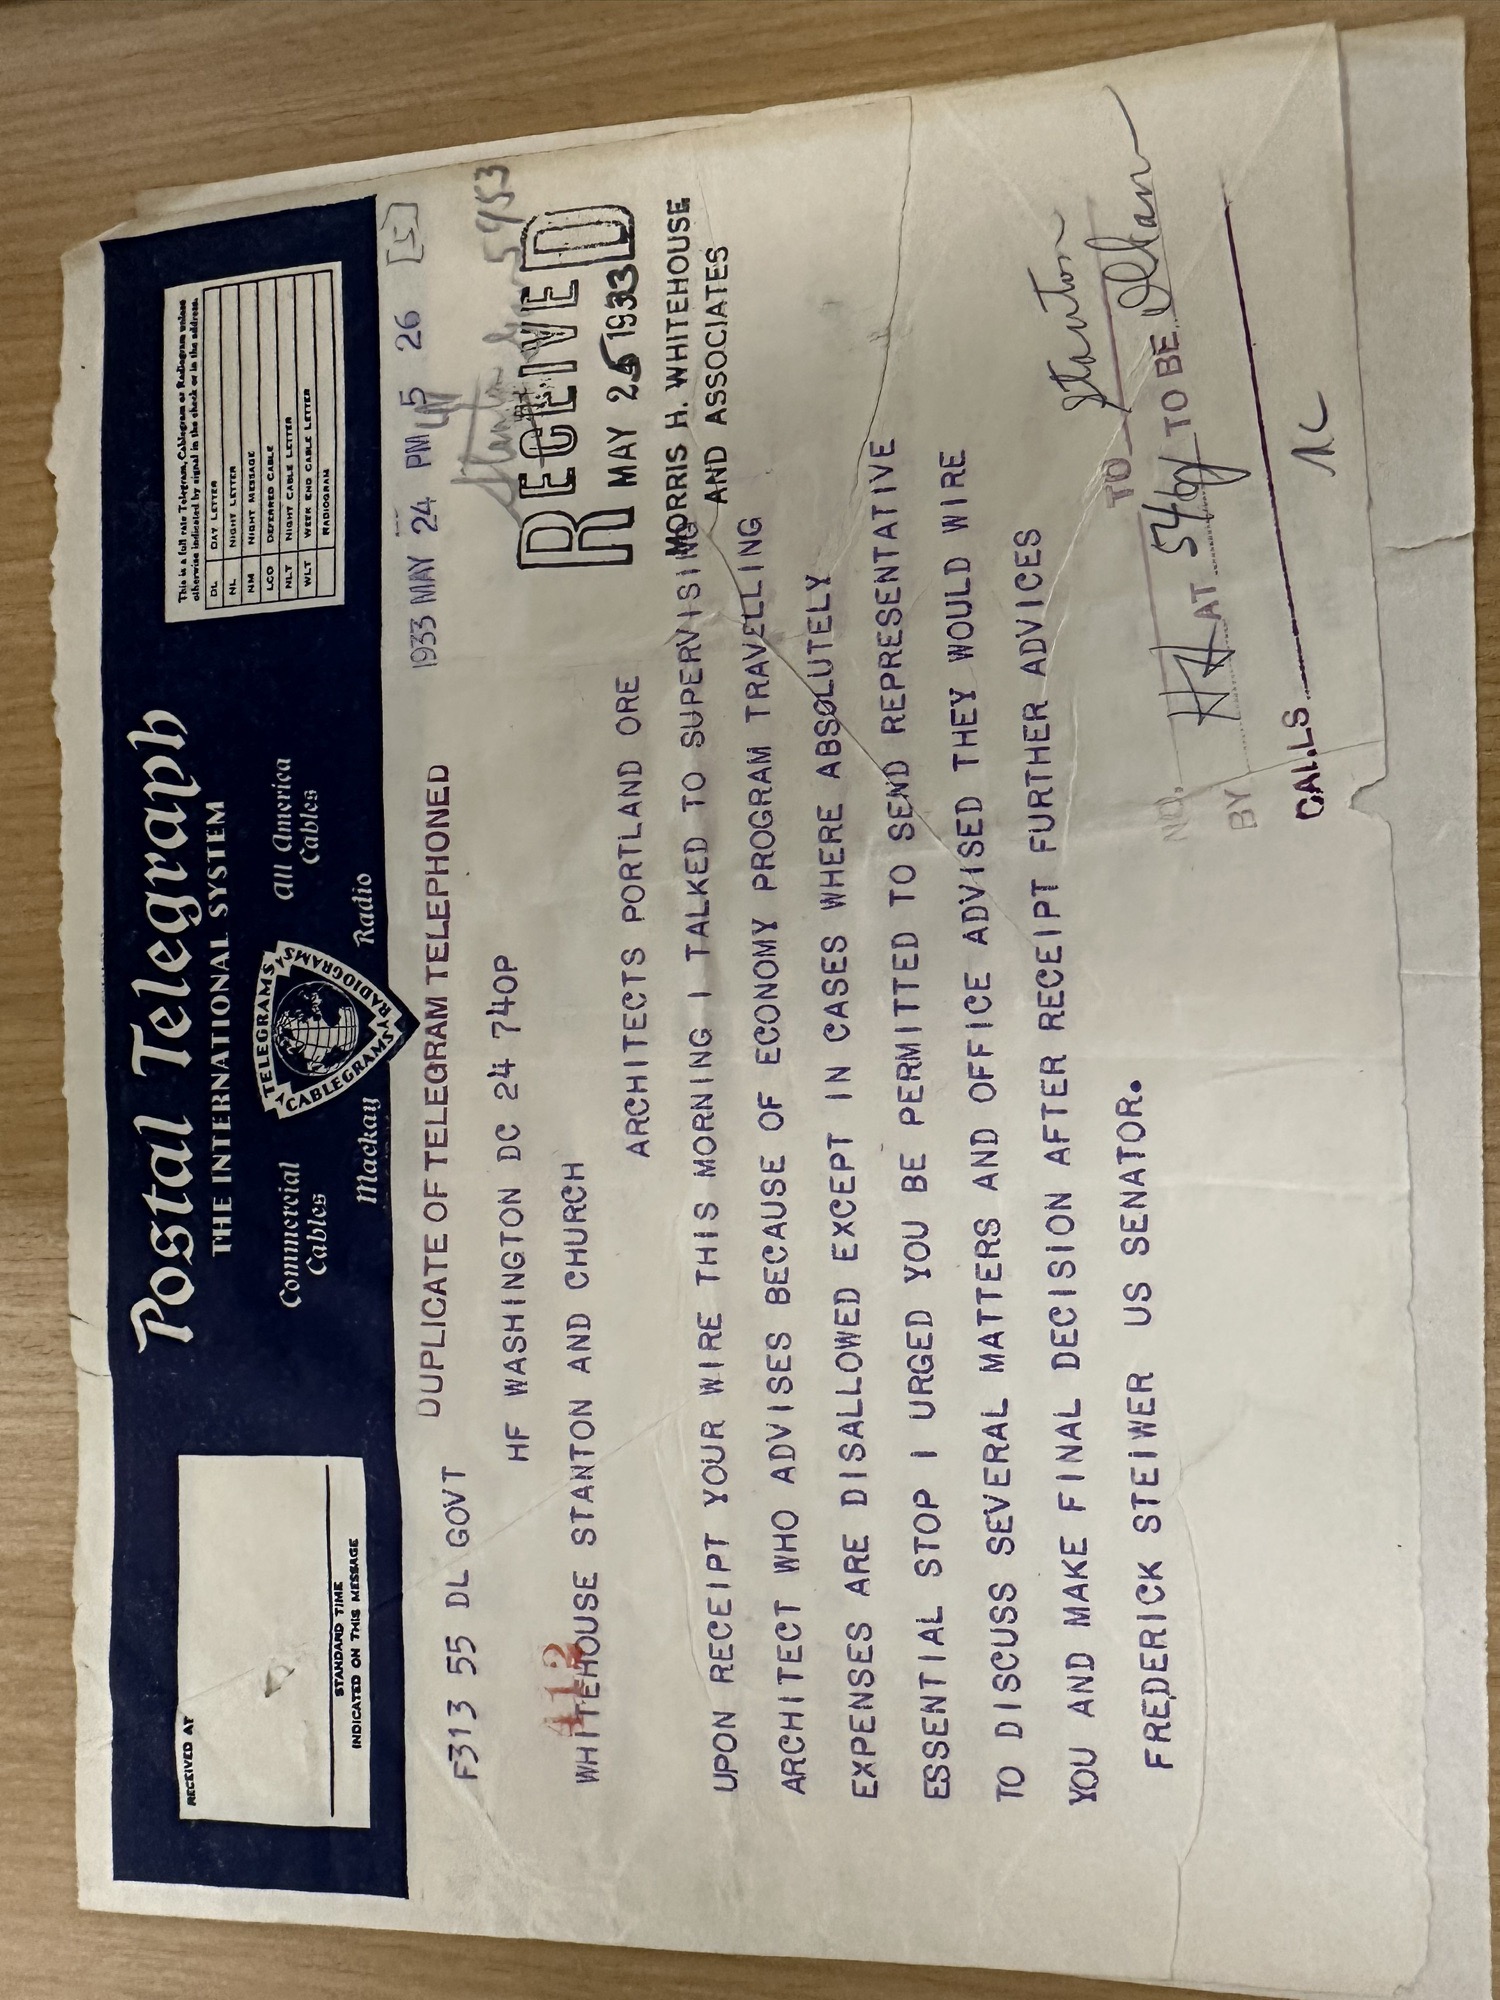 RECEIVED AT
STANDARD TIME
INDICATED ON THIS MESSAGE
Postal Telegraph
THE INTERNATIONAL SYSTEM
Commercial
Cables
All America
Cables
TELEGRAMS
CABLEGRAMS
RADIOGRAMS
Mackay
Radio
This is a full rate Telegram, Cablegram or Radiogram unless
otherwise indicated by signal in the check or in the address.
DL DAY LETTER
NL NIGHT LETTER
NM NIGHT MESSAGE
LCO DEFERRED CABLE
NLT NIGHT CABLE LETTER
WLT WEEK END CABLE LETTER
RADIOGRAM
DUPLICATE OF TELEGRAM TELEPHONED
1933 MAY 24 PM 5 26 [5]
F313 55 DL GOVT
HF WASHINGTON DC 24 740P
RECEIVED
R MAY 25 1933 D
MORRIS H. WHITEHOUSE
AND ASSOCIATES
412
WHITEHOUSE STANTON AND CHURCH
ARCHITECTS PORTLAND ORE
UPON RECEIPT YOUR WIRE THIS MORNING I TALKED TO SUPERVISING
ARCHITECT WHO ADVISES BECAUSE OF ECONOMY PROGRAM TRAVELLING
EXPENSES ARE DISALLOWED EXCEPT IN CASES WHERE ABSOLUTELY
ESSENTIAL STOP I URGED YOU BE PERMITTED TO SEND REPRESENTATIVE
TO DISCUSS SEVERAL MATTERS AND OFFICE ADVISED THEY WOULD WIRE
YOU AND MAKE FINAL DECISION AFTER RECEIPT FURTHER ADVICES
FREDERICK STEIWER US SENATOR.
Stanton
NO. TO
BY HH AT 546p TO BE
CALLS